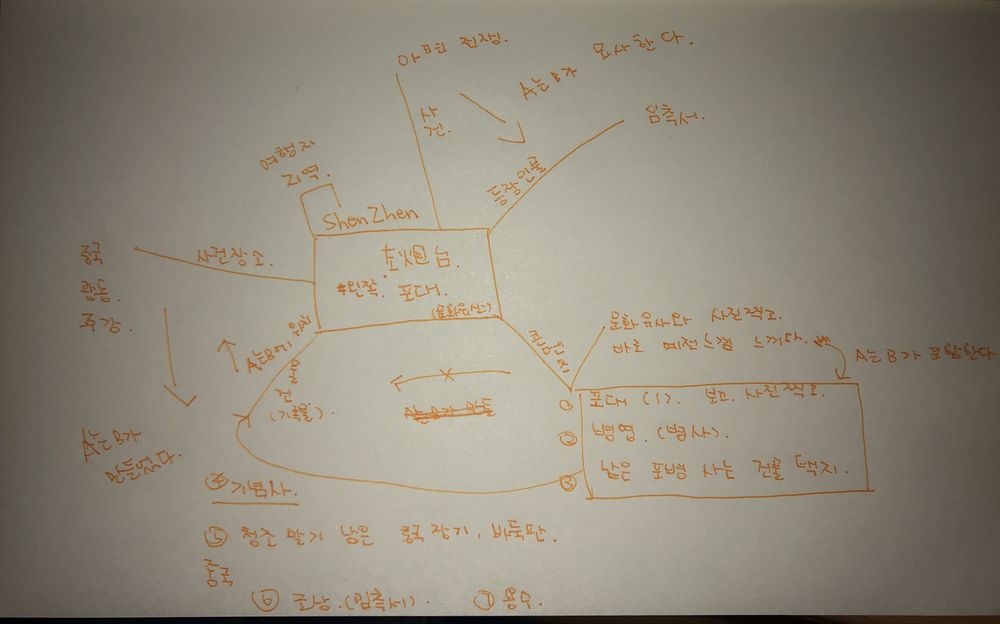 아편 전쟁.
사건.
A는 B가 묘사한다.
임측서.
등장인물
여행지
지역.
ShenZhen
左炮台.
*왼쪽. 포대.
(문화유산)
사건장소.
중국
광동.
주강.
A는 B에 위치
건물
(기록물).
A는 B가
만들었다.
문화유산와 사진찍고.
바로 예전느낌 느끼다.
A는 B가 포함한다
① 포대 (1). 보고. 사진찍고.
② 병영. (병사).
③ 낡은 포병 사는 건물 터지.
④ 기념사.
⑤ 청조 말기 남은 중국 장기, 바둑판.
중국
⑥ 조상. (임측서).
⑦ 용수.